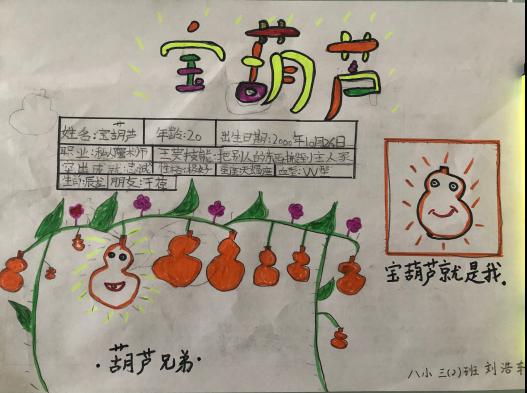 宝葫芦
姓名:宝葫芦 年龄:20 出生日期:2000年10月26日
职业:私人魔术师 主要技能:把别人的东西搬到主人家
突出成就:忠诚 性格: 血型:VV型
生肖: 朋友:王葆
宝葫芦就是我.
·葫芦兄弟·
八小 三(2)班 刘浩